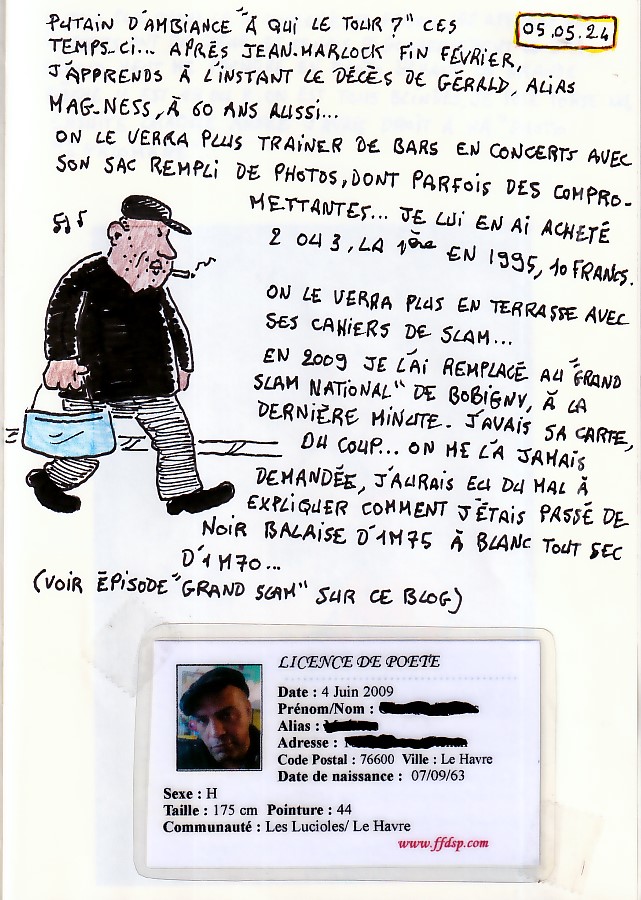 PUTAIN D'AMBIANCE "À QUI LE TOUR ?" CES
05.05.24
TEMPS-CI... APRÈS JEAN-MARLOCK FIN FÉVRIER,
J'APPRENDS À L'INSTANT LE DÉCÈS DE GÉRALD, ALIAS
MAG-NESS, À 60 ANS AUSSI...
ON LE VERRA PLUS TRAINER DE BARS EN CONCERTS AVEC
SON SAC REMPLI DE PHOTOS, DONT PARFOIS DES COMPRO-
METTANTES... JE LUI EN AI ACHETÉ
2 043, LA 1ère EN 1995, 10 FRANCS.
ON LE VERRA PLUS EN TERRASSE AVEC
SES CAHIERS DE SLAM...
EN 2009 JE L'AI REMPLACÉ AU "GRAND
SLAM NATIONAL" DE BOBIGNY, À LA
DERNIÈRE MINUTE. J'AVAIS SA CARTE,
DU COUP... ON ME L'A JAMAIS
DEMANDÉE, J'AURAIS EU DU MAL À
EXPLIQUER COMMENT J'ÉTAIS PASSÉ DE
NOIR BALAISE D'1M75 À BLANC TOUT SEC
D'1M70...
(VOIR ÉPISODE "GRAND SLAM" SUR CE BLOG)
LICENCE DE POETE
Date : 4 Juin 2009
Prénom/Nom :
Alias :
Adresse :
Code Postal : 76600 Ville : Le Havre
Date de naissance : 07/09/63
Sexe : H
Taille : 175 cm Pointure : 44
Communauté : Les Lucioles/ Le Havre
www.ffdsp.com